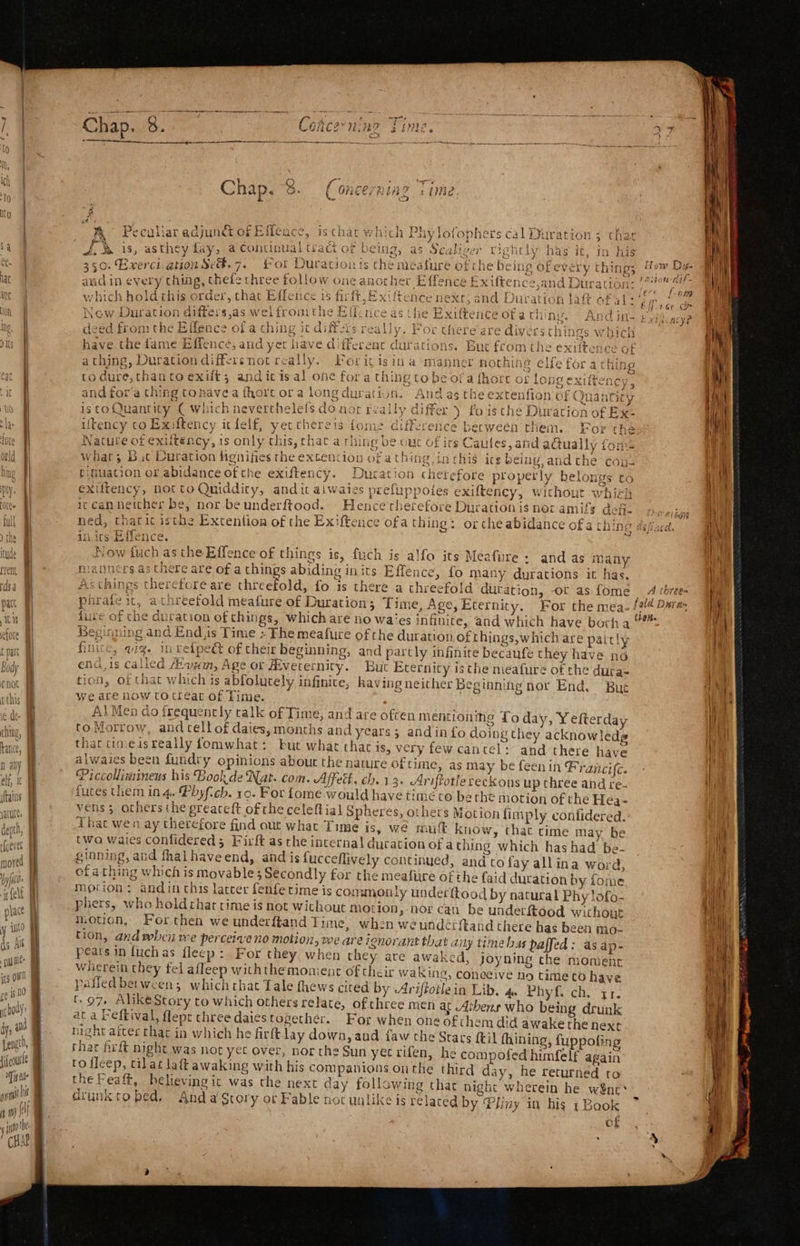 Chap. 8. Concerning Time. 37
Chap. 8. Concerning Time.
A Peculiar adjunct of Essence, is that which Phylosophers cal Duration; that
is, as they say, a continual tract of being, as Scaliger rightly has it, in his
350. Exercitation Sect. 7. For Duration is the measure of the being of every thing;
and in every thing, these three follow one another Essence Existence, and Duration:
which hold this order, that Essence is first, Existence next, and Duration last of al:
Now Duration differs, as wel from the Essence as the Existence of a thing. And in-
deed from the Essence of a thing it differs really. For there are divers things which
have the same Essence, and yet have different durations. But from the existence of
a thing, Duration differs not really. For it is in a manner nothing else for a thing
to dure, than to exist; and it is al one for a thing to be of a short or long existency,
and for a thing to have a short or a long duration. And as the extension of Quantity
is to Quantity (which nevertheless do not really differ) so is the Duration of Ex-
istency to Existency it self, yet there is some difference between them. For the
Nature of existency, is only this, that a thing be out of its Causes, and actually som-
what; But Duration signifies the extention of a thing, in this its being, and the con-
tinuation or abidance of the existency. Duration therefore properly belongs to
existency, not to Quiddity, and it alwaies presupposes existency, without which
it can neither be, nor be understood. Hence therefore Duration is not amiss defi-
ned, that it is the Extention of the Existence of a thing: or the abidance of a thing
in its Essence.
Now such as the Essence of things is, such is also its Measure: and as many
manners as there are of a things abiding in its Essence, so many durations it has.
As things therefore are threefold, so is there a threefold duration, or as some
phrase it, a threefold measure of Duration; Time, Age, Eternity. For the mea-
sure of the duration of things, which are no waies infinite, and which have both a
Beginning and End, is Time: The measure of the duration of things, which are partly
finite, viz. in respect of their beginning, and partly infinite because they have no
end, is called Ævum, Age or Æveternity. But Eternity is the measure of the dura-
tion, of that which is absolutely infinite, having neither Beginning nor End. But
we are now to treat of Time.
Al Men do frequently talk of Time, and are often mentioning To day, Yesterday
to Morrow, and tell of daies, months and years; and in so doing they acknowledg
that time is really somwhat: but what that is, very few can tel: and there have
alwaies been sundry opinions about the nature of time, as may be seen in Francisc.
Piccollimineus his Book, de Nat. com. Affect. ch. 13. Aristotle reckons up three and re-
futes them in 4. Physf. ch. 10. For some would have time to be the motion of the Hea-
vens; others the greatest of the celestial Spheres, others Motion simply considered.
That we may therefore find out what Time is, we must know, that time may be
two waies considered; First as the internal duration of a thing which has had be-
ginning, and shal have end, and is successively continued, and to say all in a word,
of a thing which is movable; Secondly for the measure of the said duration by some
motion: and in this latter sense time is commonly understood by natural Phyloso-
phers, who hold that time is not without motion, nor can be understood without
motion. For then we understand Time, when we understand there has been mo-
tion, and when we perceive no motion, we are ignorant that any time has passed: as ap-
pears in such as sleep: For they when they are awaked, joyning the moment
wherein they fel asleep with the moment of their waking, conceive no time to have
passed between; which that Tale shews cited by Aristotle in Lib. 4. Physf. ch. 11.
t. 97. Alike Story to which others relate, of three men at Athens who being drunk
at a Festival, slept three daies together. For when one of them did awake the next
night after that in which he first lay down, and saw the Stars stil shining, supposing
that first night was not yet over, nor the Sun yet risen, he composed himself again
to sleep, til at last awaking with his companions on the third day, he returned to
the Feast, believing it was the next day following that night wherein he went
drunk to bed. And a Story or Fable not unlike is related by Pliny in his 1 Book
of
How Du-
ration dif-
fers from
Essence or
Existency?
Duration
defined.
A three-
fold Dura-
tion.